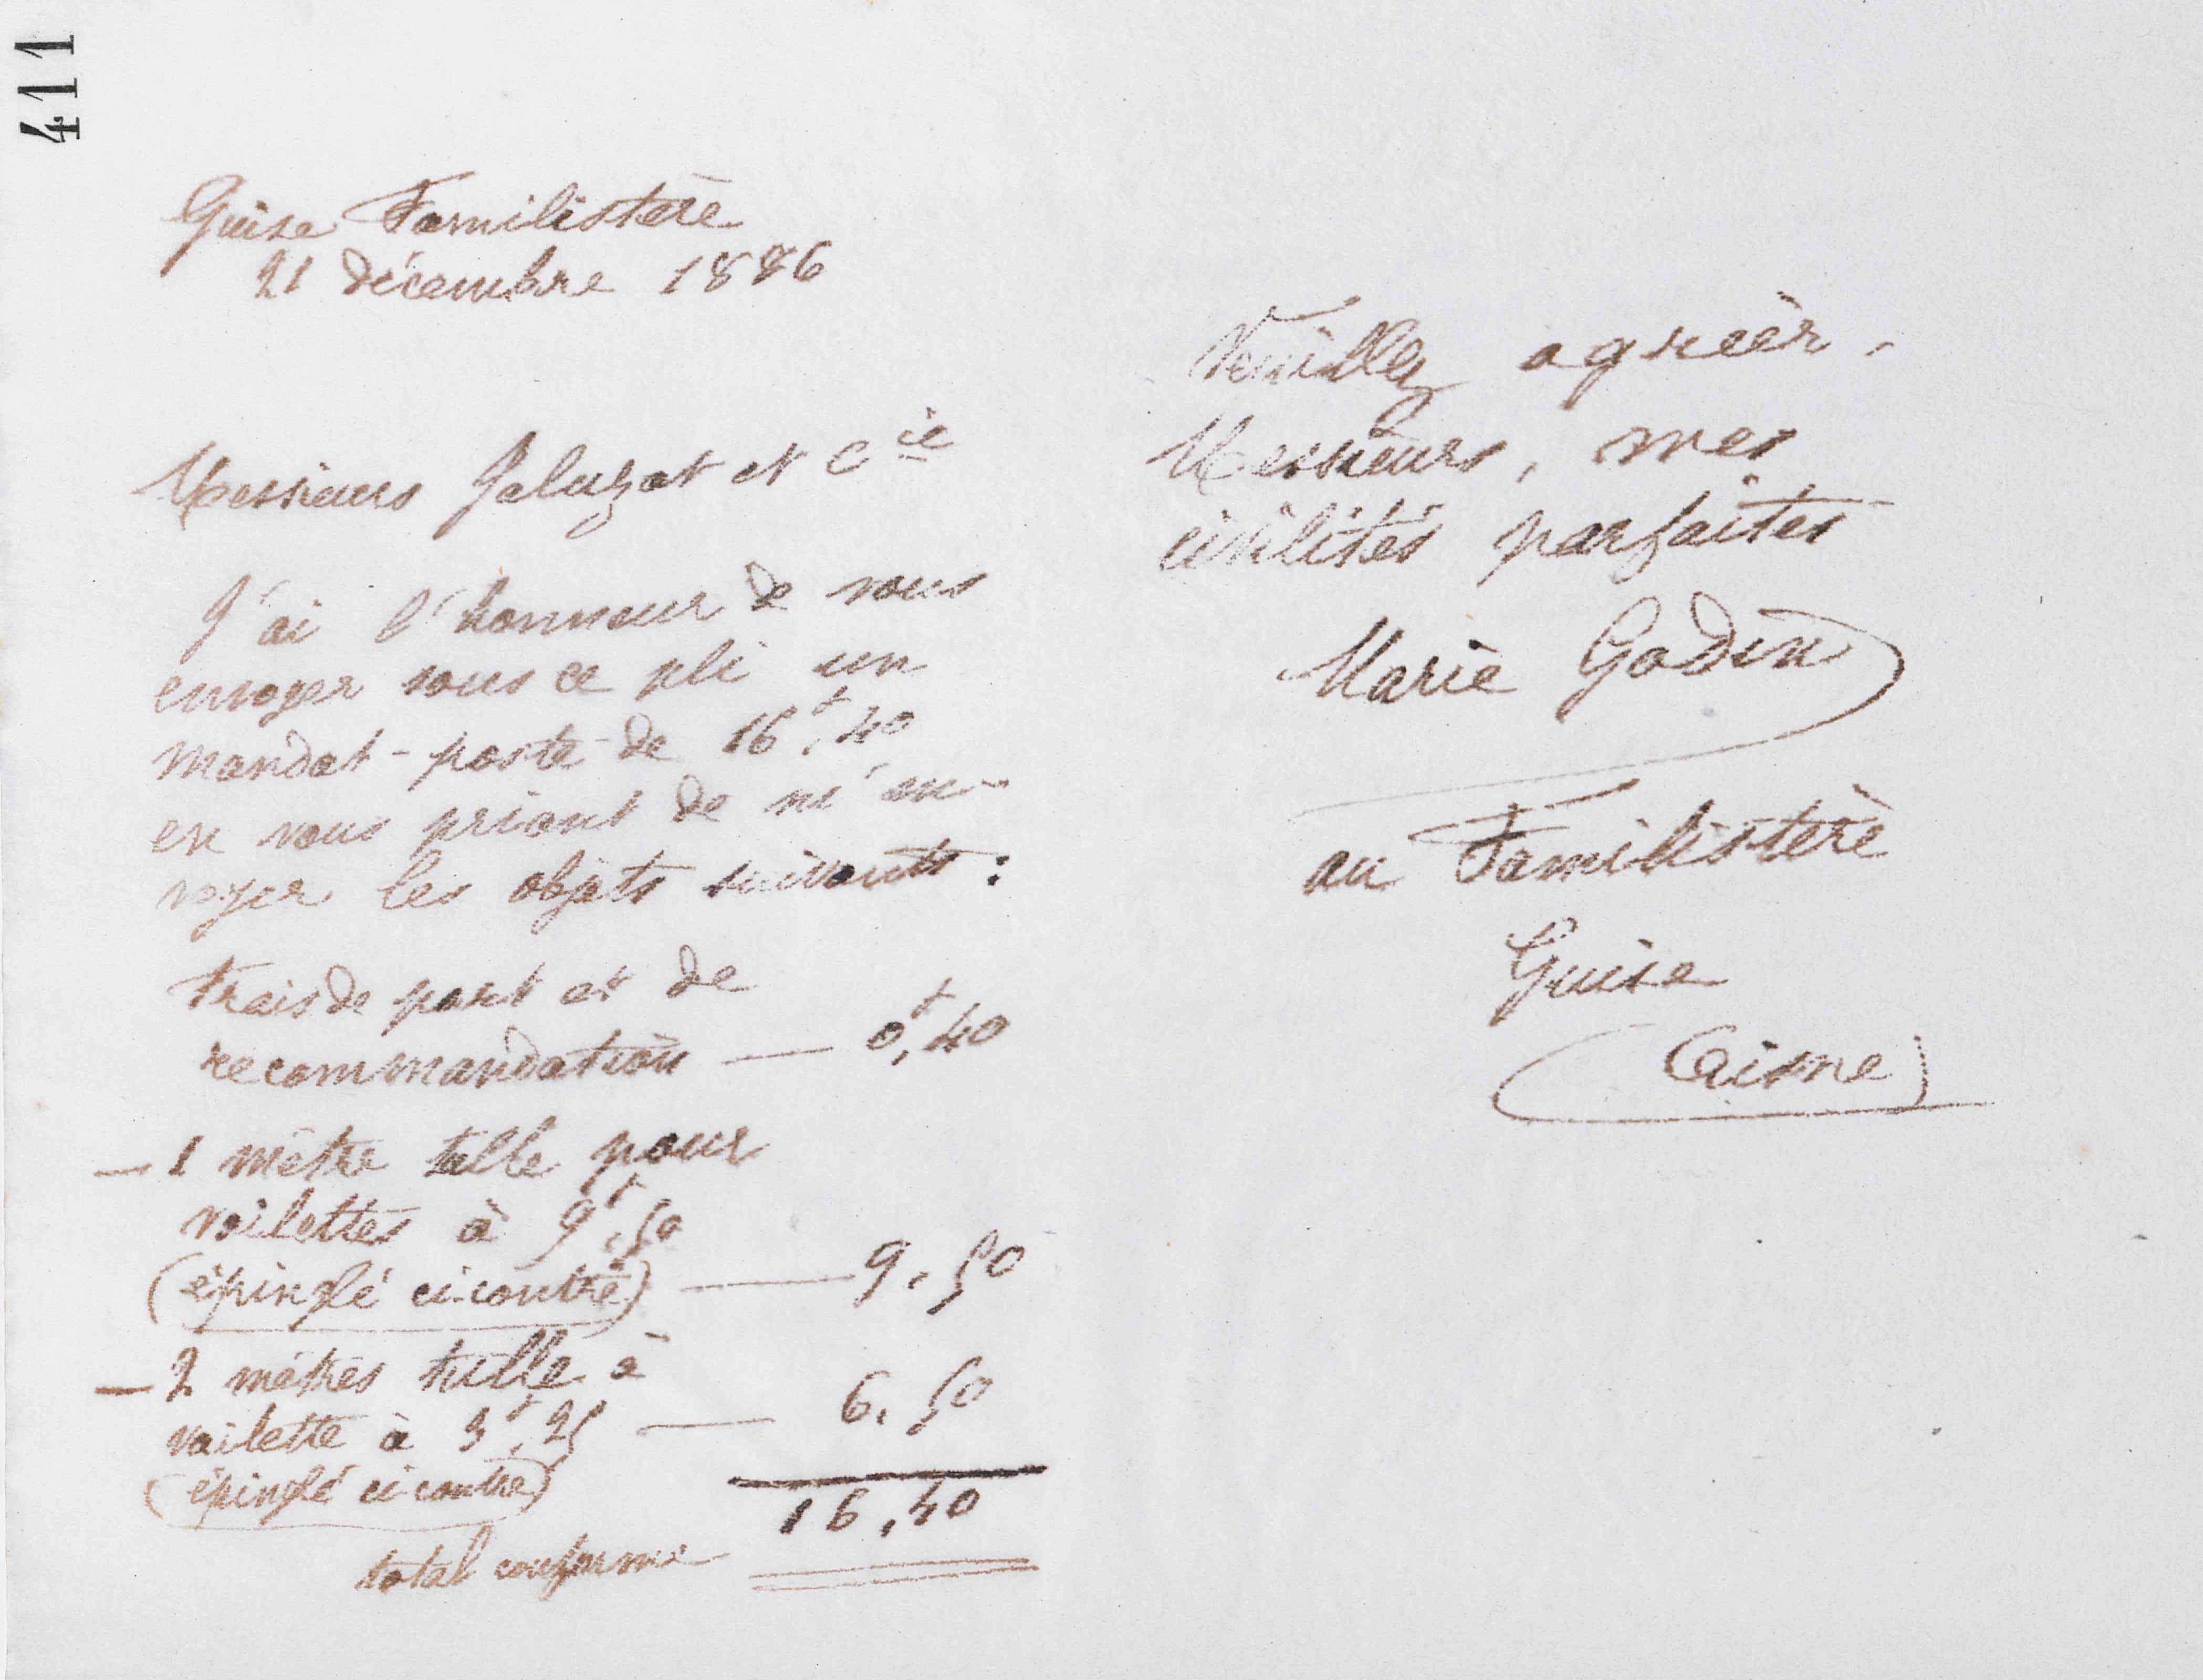 411
Guise Familistère
21 décembre 1886
Messieurs Jaluzot et Cie
J'ai l'honneur de vous
envoyer sous ce pli un
mandat-poste de 16f,40
en vous priant de m'en-
voyer les objets suivants :
Frais de port et de
recommandation — 0f,40
— 1 mètre tulle pour
voilettes à 9f,50
(épinglé ci-contre) — 9,50
— 2 mètres tulle à
voilette à 3f,25 — 6,50
(épinglé ci-contre)
16,40
total conforme
Veuillez agréer,
Messieurs, mes
civilités parfaites
Marie Godin
au Familistère
Guise
(Aisne)